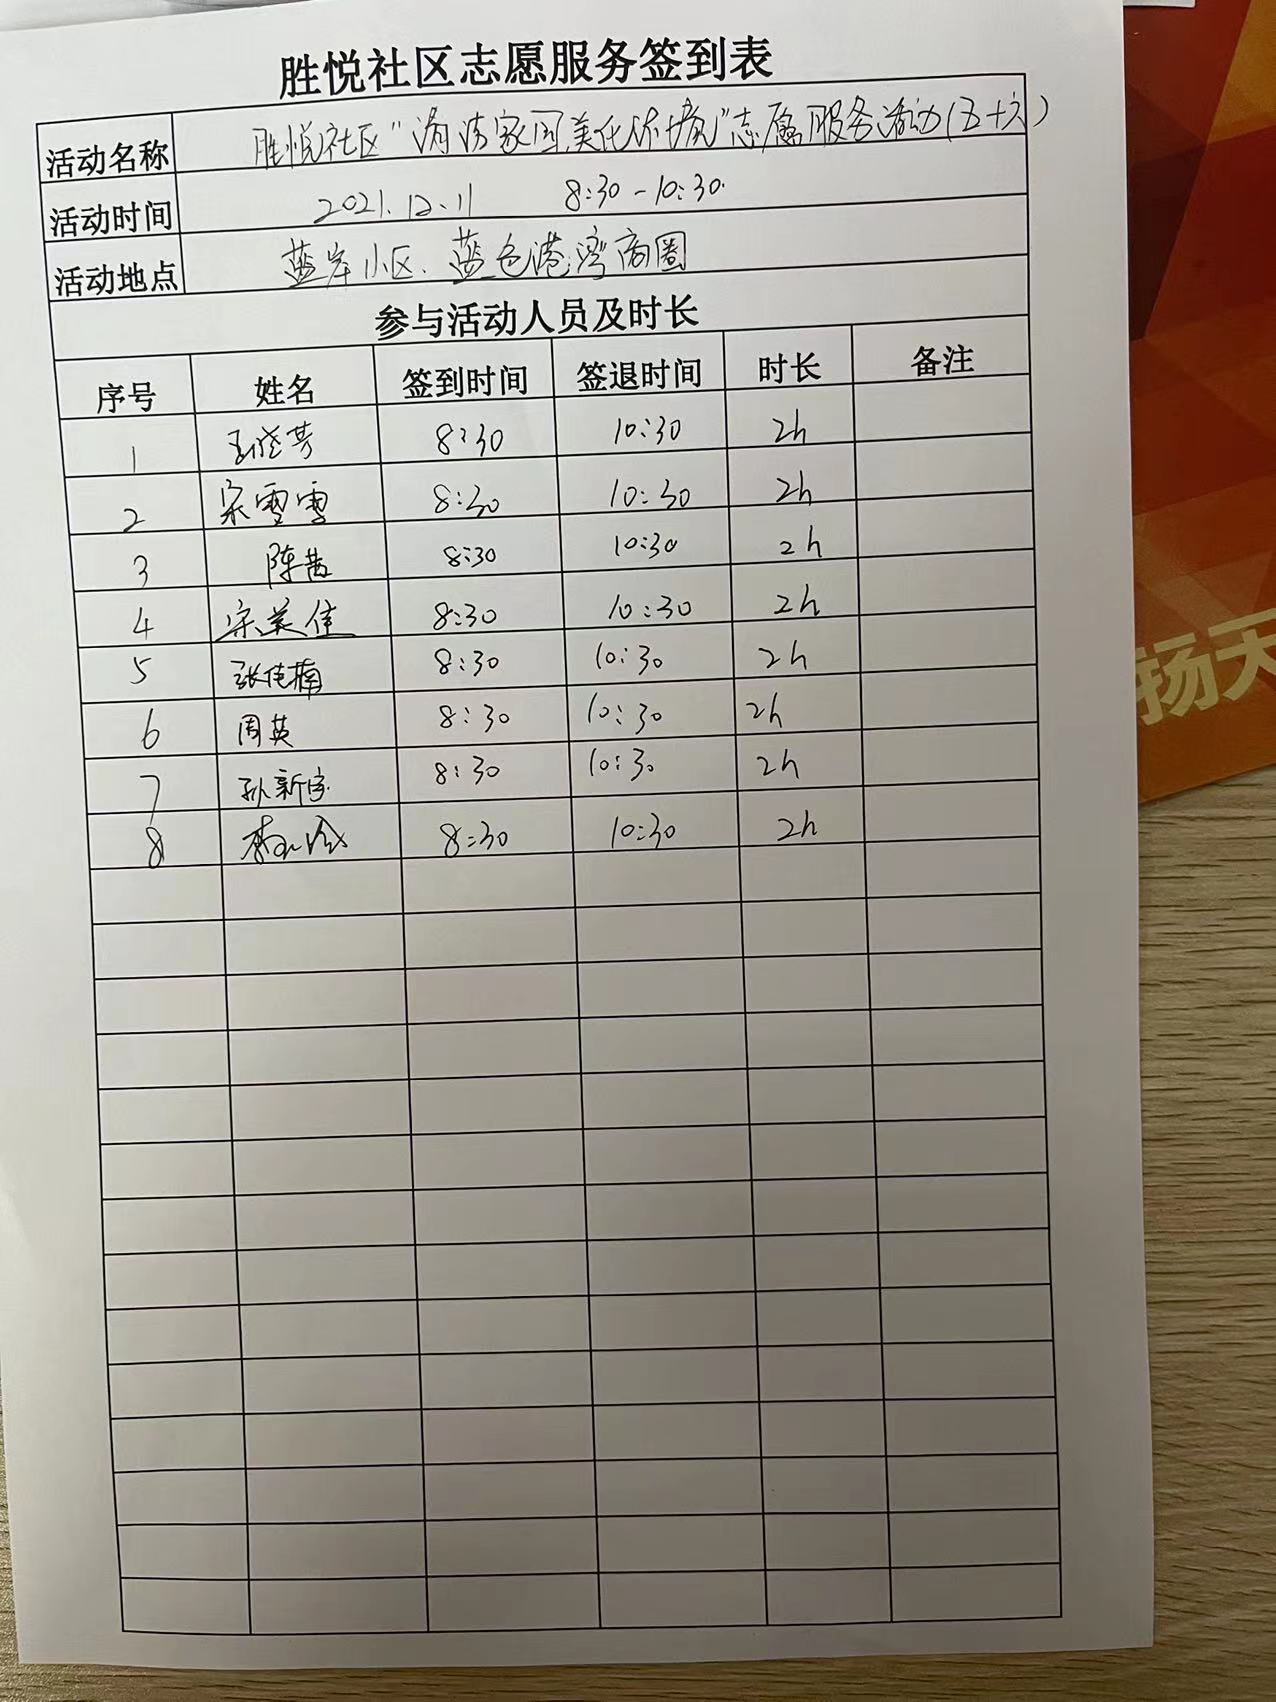 胜悦社区志愿服务签到表
活动名称 胜悦社区“清洁家园,美化环境”志愿服务活动(五十六)
活动时间 2021.12.11 8:30-10:30
活动地点 蓝岸小区、蓝色港湾商圈
参与活动人员及时长
序号 姓名 签到时间 签退时间 时长 备注
1 王晓芳 8:30 10:30 2h
2 宋雪雪 8:30 10:30 2h
3 陈茜 8:30 10:30 2h
4 宋美佳 8:30 10:30 2h
5 张佳楠 8:30 10:30 2h
6 周英 8:30 10:30 2h
7 孙新宇 8:30 10:30 2h
8 8:30 10:30 2h
扬天